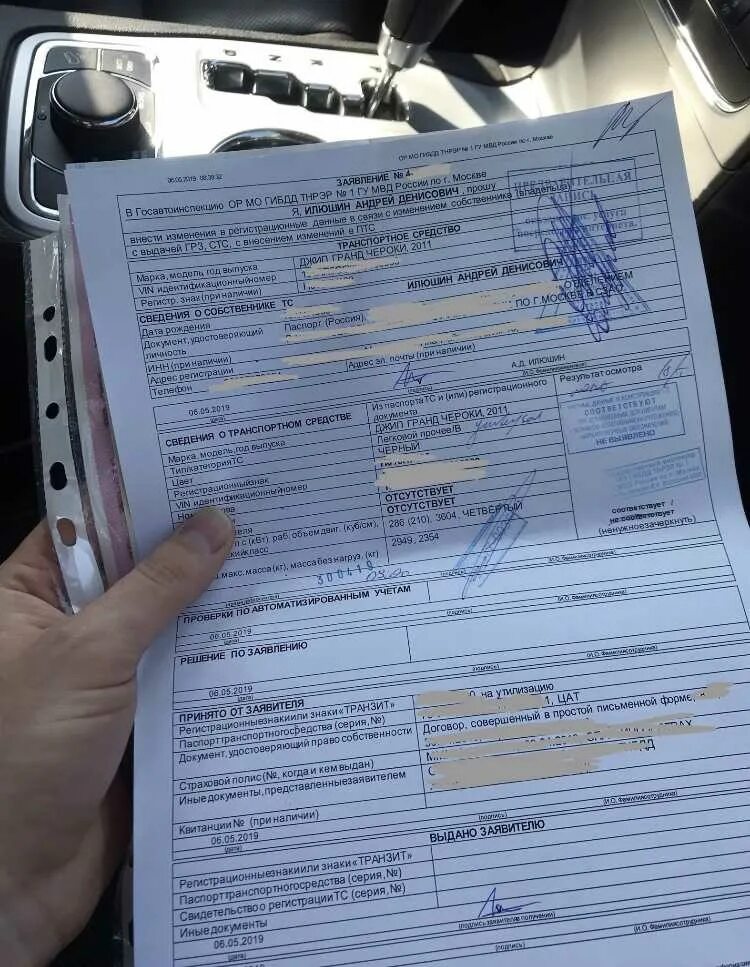 06.05.2019 08:39:32
ОР МО ГИБДД ТНРЭР № 1 ГУ МВД России по г. Москве
ЗАЯВЛЕНИЕ № 4-
В Госавтоинспекцию ОР МО ГИБДД ТНРЭР № 1 ГУ МВД России по г. Москве
Я, ИЛЮШИН АНДРЕЙ ДЕНИСОВИЧ, прошу
внести изменения в регистрационные данные в связи с изменением собственника (владельца)
с выдачей ГРЗ, СТС, с внесением изменений в ПТС
ПРЕДВАРИТЕЛЬНАЯ
ЗАПИСЬ
ТРАНСПОРТНОЕ СРЕДСТВО
Марка, модель, год выпуска ДЖИП ГРАНД ЧЕРОКИ, 2011
VIN идентификационный номер
Регистр. знак (при наличии)
СВЕДЕНИЯ О СОБСТВЕННИКЕ ТС ИЛЮШИН АНДРЕЙ ДЕНИСОВИЧ
Дата рождения
Документ, удостоверяющий личность Паспорт (Россия), ОТДЕЛЕНИЕМ
ПО Г МОСКВЕ В СЗАО
ИНН (при наличии)
Адрес регистрации Адрес эл. почты (при наличии)
Телефон
А.Д. ИЛЮШИН
06.05.2019 (подпись) (И.О. Фамилия заявителя)
(дата)
СВЕДЕНИЯ О ТРАНСПОРТНОМ СРЕДСТВЕ Из паспорта ТС и (или) регистрационного документа Результат осмотра
Марка, модель, год выпуска ДЖИП ГРАНД ЧЕРОКИ, 2011
Тип/категория ТС Легковой прочее/В
Цвет ЧЕРНЫЙ
Регистрационный знак
VIN идентификационный номер
ОТСУТСТВУЕТ
ОТСУТСТВУЕТ
СООТВЕТСТВУЮТ
НЕ ВЫЯВЛЕНО
л с (кВт), раб. объем двиг. (куб/см), 286 (210), 3604, ЧЕТВЕРТЫЙ
макс. масса (кг), масса без нагруз. (кг) 2949, 2354
соответствует /
не соответствует
(ненужное зачеркнуть)
300419
(подпись) (И.О. Фамилия сотрудника)
ПРОВЕРКИ ПО АВТОМАТИЗИРОВАННЫМ УЧЕТАМ
06.05.2019
(дата) (подпись) (И.О. Фамилия сотрудника)
РЕШЕНИЕ ПО ЗАЯВЛЕНИЮ
06.05.2019
(дата) (подпись) (И.О. Фамилия сотрудника)
ПРИНЯТО ОТ ЗАЯВИТЕЛЯ
Регистрационные знаки или знаки «ТРАНЗИТ» на утилизацию
Паспорт транспортного средства (серия, №) 1, ЦАТ
Документ, удостоверяющий право собственности Договор, совершенный в простой письменной форме,
Страховой полис (№, когда и кем выдан)
Иные документы, представленные заявителем
Квитанции № (при наличии)
06.05.2019
(дата) (подпись) (И.О. Фамилия сотрудника)
ВЫДАНО ЗАЯВИТЕЛЮ
Регистрационные знаки или знаки «ТРАНЗИТ»
Паспорт транспортного средства (серия, №)
Свидетельство о регистрации ТС (серия, №)
Иные документы
06.05.2019 (подпись заявителя о получении)
(дата) (подпись) (И.О. Фамилия сотрудника)